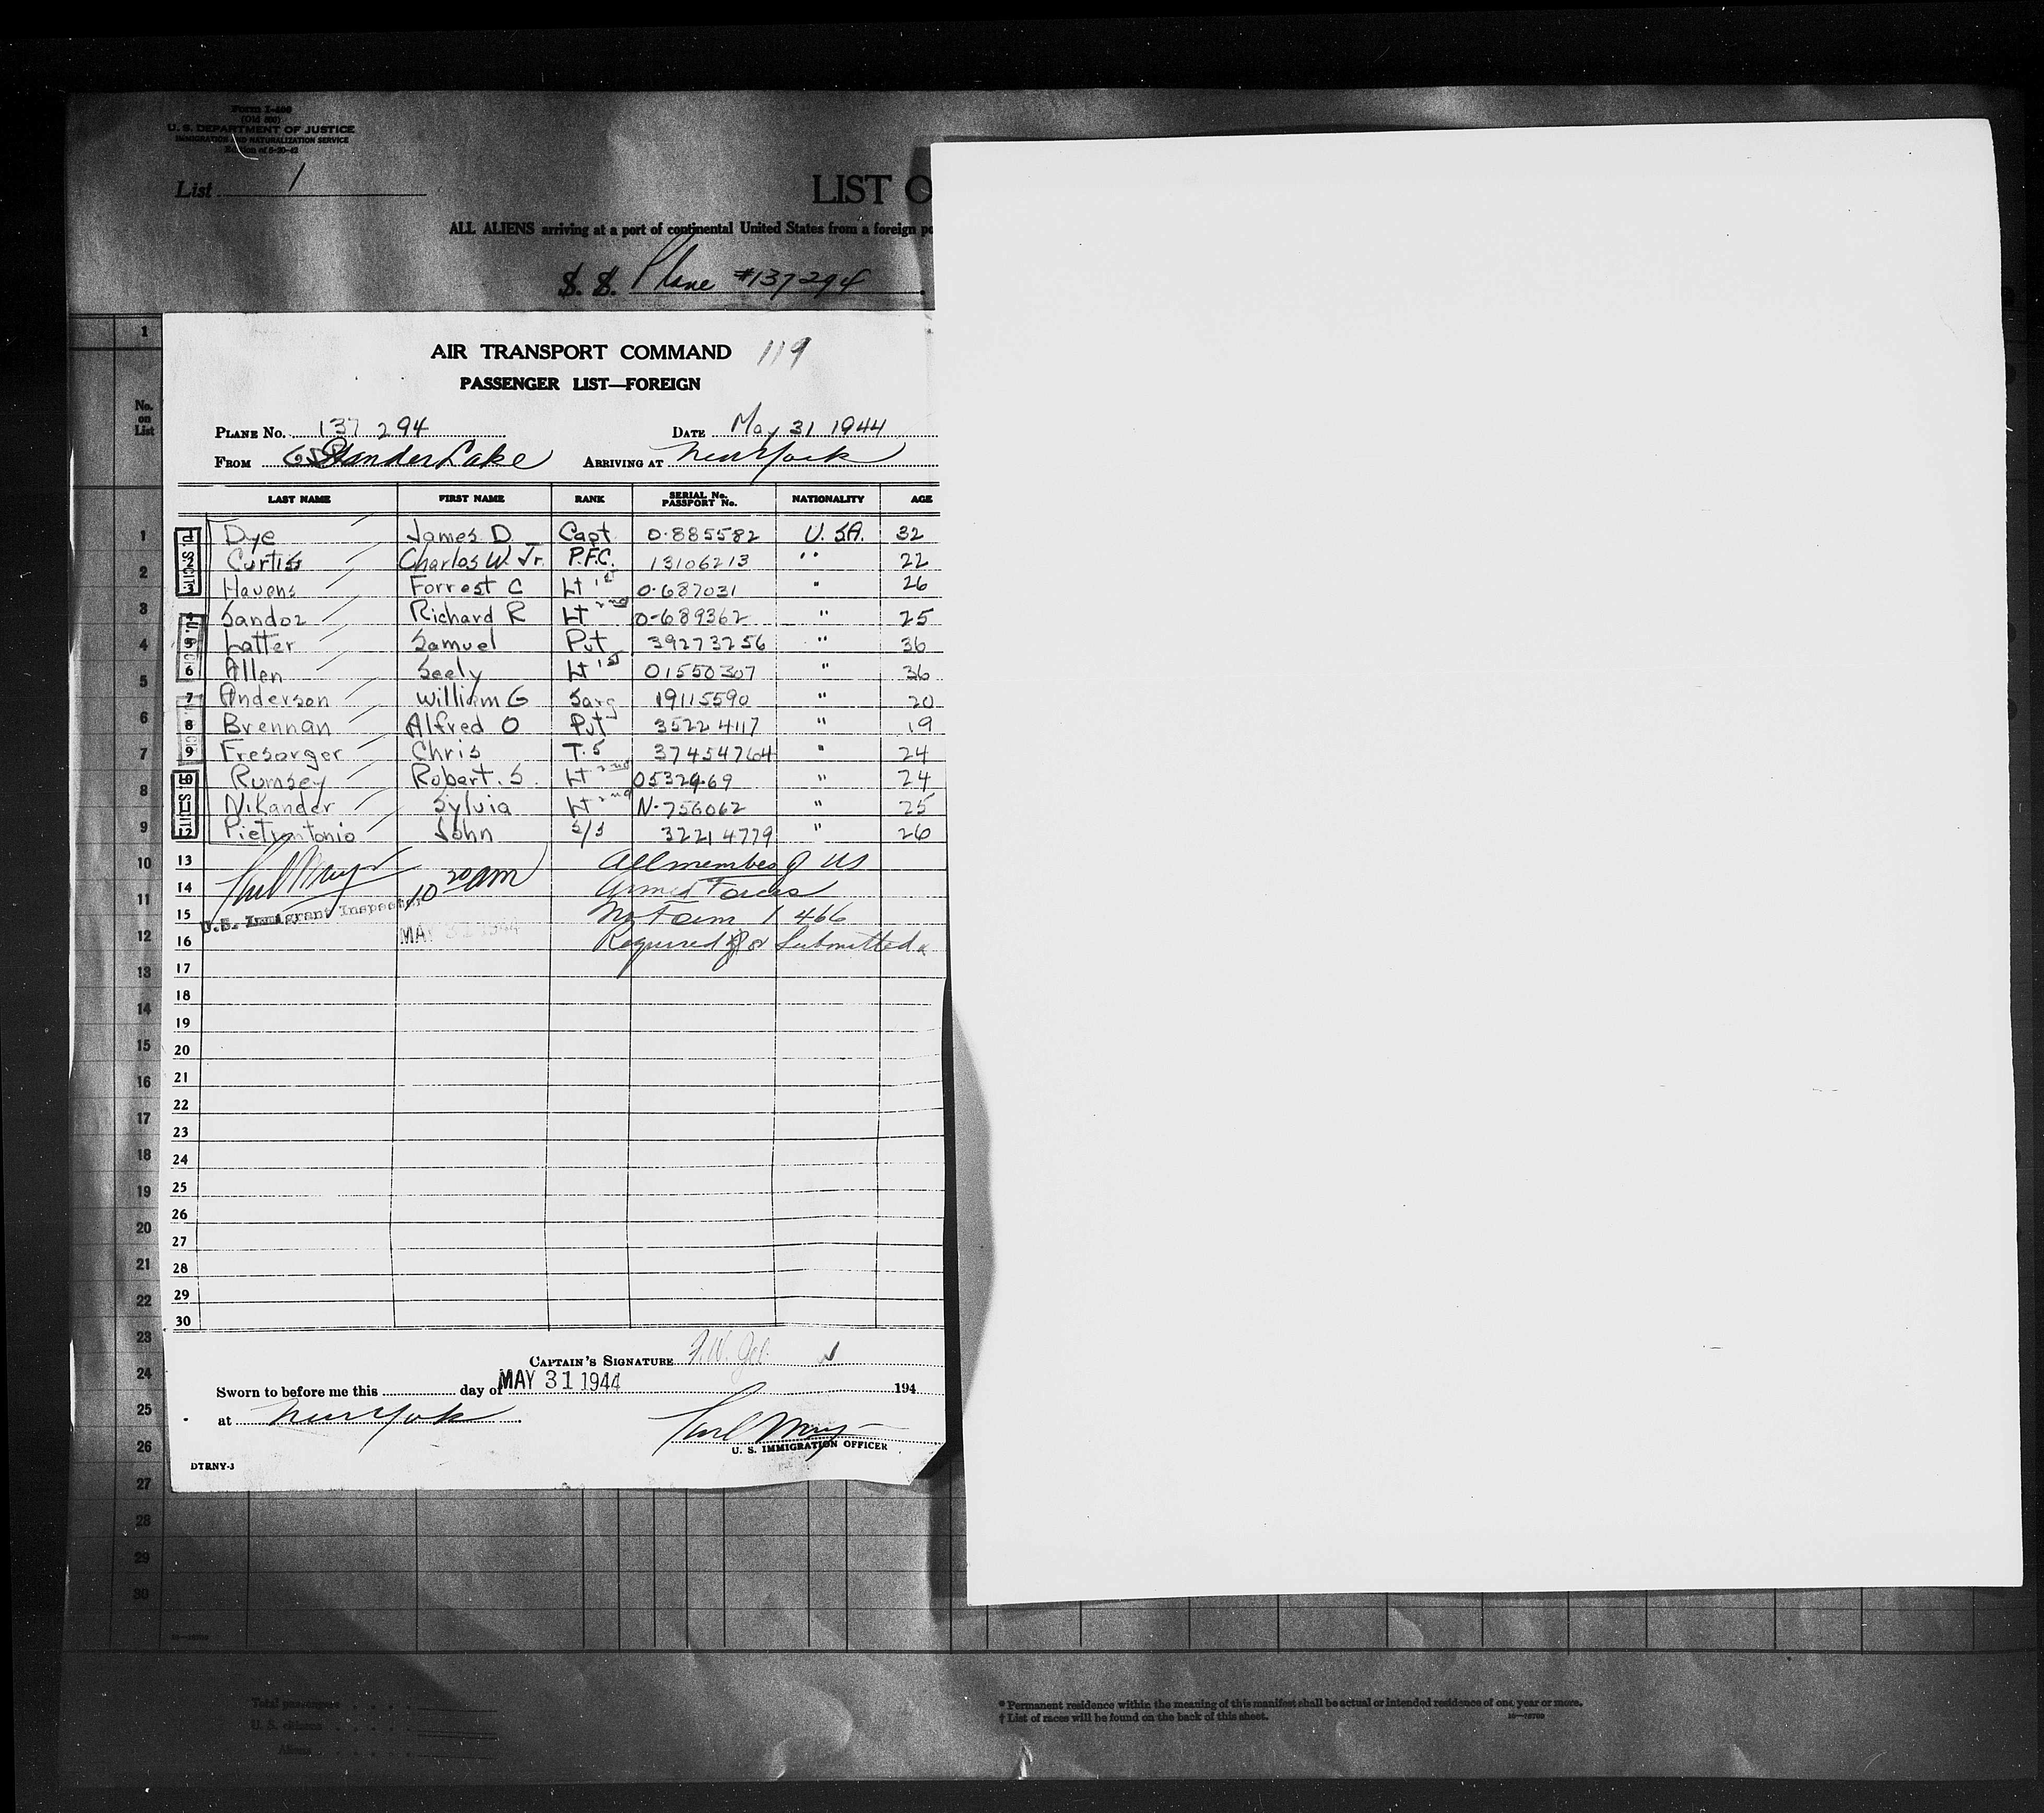 Form I-400
(Old 500)
U. S. DEPARTMENT OF JUSTICE
IMMIGRATION AND NATURALIZATION SERVICE
Edition of 8-20-42
List 1
LIST O
ALL ALIENS arriving at a port of continental United States from a foreign po
S. S. Plane #137294
AIR TRANSPORT COMMAND 119
PASSENGER LIST—FOREIGN
PLANE No. 137 294 DATE May 31 1944
FROM Gander Lake ARRIVING AT New York
No. on List
LAST NAME FIRST NAME RANK SERIAL No. PASSPORT No. NATIONALITY AGE
Dye James D Capt 0-885582 U.S.A. 32
Curtis Charles W. Jr. P.F.C. 13106213 " 22
3 Havens Forrest C Lt 1st 0-687031 " 26
Sandoz Richard R Lt 2nd 0-689362 " 25
5 Latter Samuel Pvt 39273256 " 36
6 Allen Seely Lt 1st 01550307 " 36
7 Anderson William G Sarg 19115590 " 20
8 Brennan Alfred O Pvt 35224117 " 19
9 Fresorger Chris T.5 37454764 " 24
Rumsey Robert. S. Lt 2nd 0532969 " 24
Nikander Sylvia Lt 2nd N-756062 " 25
Pietrontonio John S/S 32214779 " 26
13 All members of US
14 10 20 am Armed Forces
15 U.S. Immigrant Inspector No Form I 466
16 MAY 31 1944 Required or Submitted
17
18
19
20
21
22
23
24
25
26
27
28
29
30
CAPTAIN'S SIGNATURE
Sworn to before me this day of MAY 31 1944 194
at New York
U. S. IMMIGRATION OFFICER
DTRNY-3
1
1
2
3
4
5
6
7
8
9
10
11
12
13
14
15
16
17
18
19
20
21
22
23
24
25
26
27
28
29
30
Total passengers
U. S. citizens
Aliens
* Permanent residence within the meaning of this manifest shall be actual or intended residence of one year or more.
† List of races will be found on the back of this sheet.